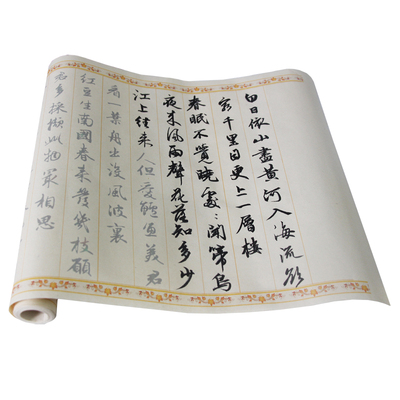 白日依山盡黄河入海流欲
窮千里目更上一層樓
春眠不覺曉處〻聞啼鳥
夜来風雨聲花落知多少
江上往来人但愛鱸魚美君
看一葉舟出没風波裏
红豆生南國春来發幾枝願
君多採撷此物最相思